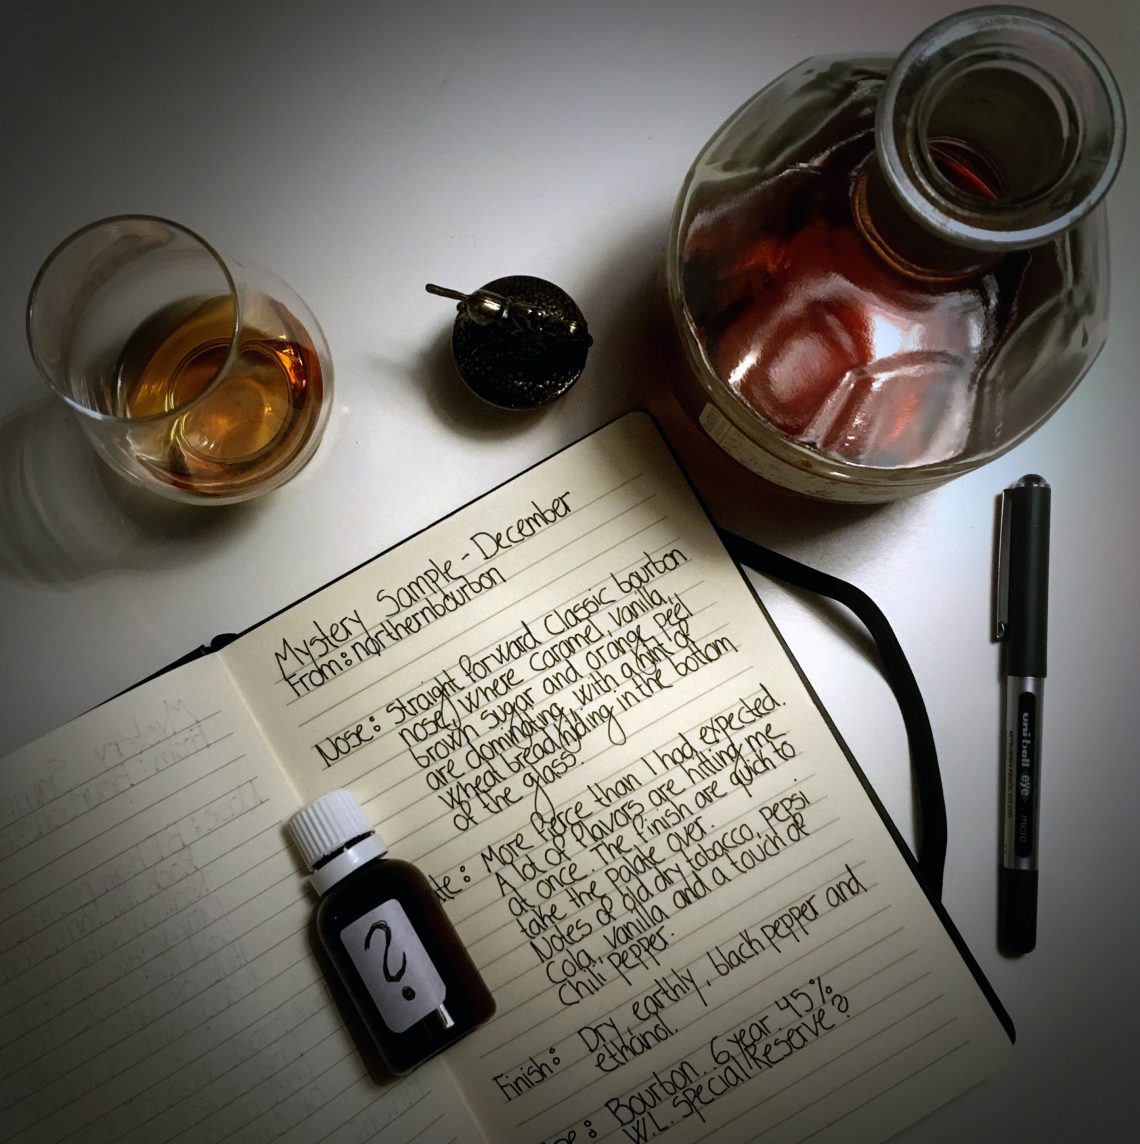 Mystery Sample - December
From: northernbourbon
Nose: Straight forward classic bourbon
nose, where caramel, vanilla,
brown sugar and orange peel
are dominating, with a hint of
wheat bread hiding in the bottom
of the glass.
te: More fierce than I had expected.
A lot of flavors are hitting me
at once. The finish are quich to
take the palate over.
Notes of old dry tobacco, Pepsi
Cola, vanilla and a touch of
chili pepper.
Finish: Dry, earthly, black pepper and
ethanol.
Bourbon. 6 year. 45%
W.L. Special Reserve?
?
uni-ball eye
micro